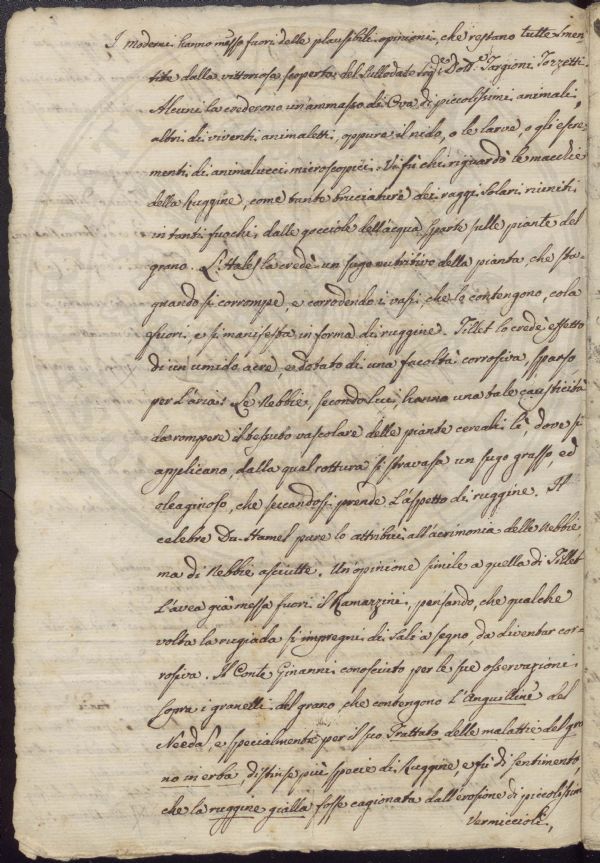 I moderni hanno messo fuori delle plausibili opinioni, che restano tutte smen-
tite dalla vittoriosa scoperta del sullodato Sig.re Dott.e Targioni Tozzetti.
Alcuni la crederono un'ammasso di Ova di piccolissimi animali,
altri di viventi animaletti, oppure il nido, o le larve, o gli escre-
menti di animalucci microscopici. Vi fù chi riguardò le macchie
della Ruggine, come tante bruciature dei raggi Solari riuniti
in tanti fuochi, dalle gocciole dell'acqua sparse sulle piante del
grano. L'Hales la credè un sugo nutritivo della pianta, che sta-
gnando si corrompe, e corrodendo i vasi, che lo contengono, cola
fuori, e si manifesta in forma di ruggine. Tillet lo credè effetto
di un umido acre, e dotato di una facoltà corrosiva, sparso
per l'aria: Le Nebbie, secondo lui, hanno una tale causticità
da rompere il tessuto vascolare delle piante cereali lì, dove si
applicano, dalla qual rottura si stravasa un sugo grasso, ed
oleaginoso, che seccandosi prende l'aspetto di ruggine. Il
celebre Du-Hamel pure lo attribuì all'acrimonia delle Nebbie,
ma di Nebbie asciutte. Un'opinione simile a quella di Tillet
l'avea già messa fuori il Ramazzini, pensando, che qualche
volta la rugiada si impregni di Sali a segno, da diventar cor-
rosiva. Il Conte Ginanni conosciuto per le sue osservazioni
sopra i granelli del grano, che contengono l'Anguilline del
Needa, e specialmente per il suo Trattato delle malattie del gra
no in erba distinse più specie di Ruggine, e fù di sentimento,
che la ruggine gialla fosse cagionata dall'erosione di piccolissimi
Vermiccioli,